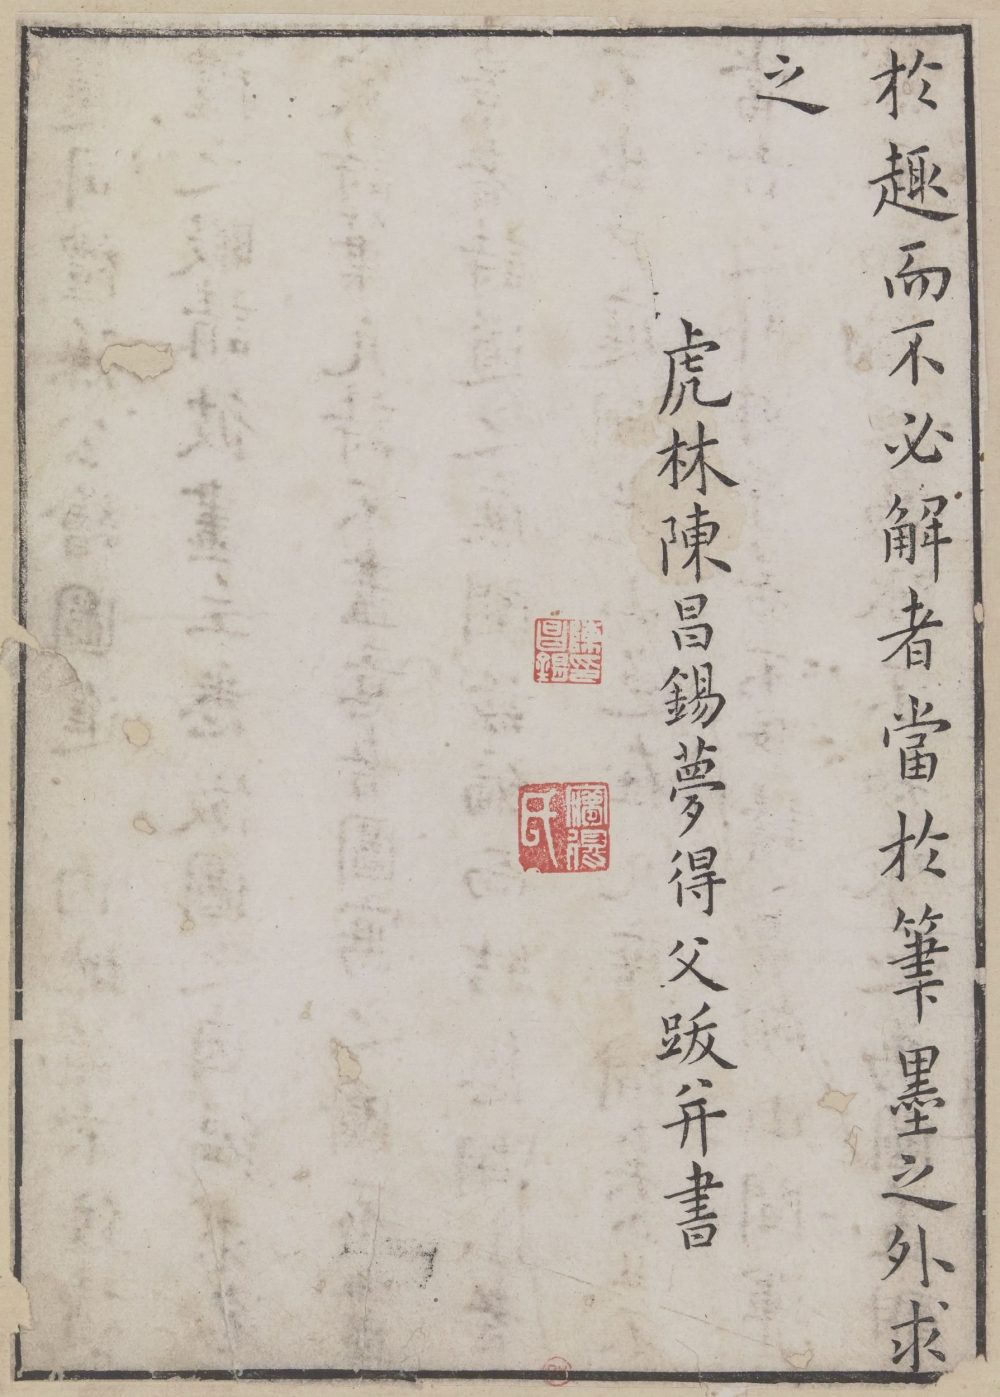 於趣而不必解者當於筆墨之外求
之
虎林陳昌錫夢得父跋并書
陳印昌錫